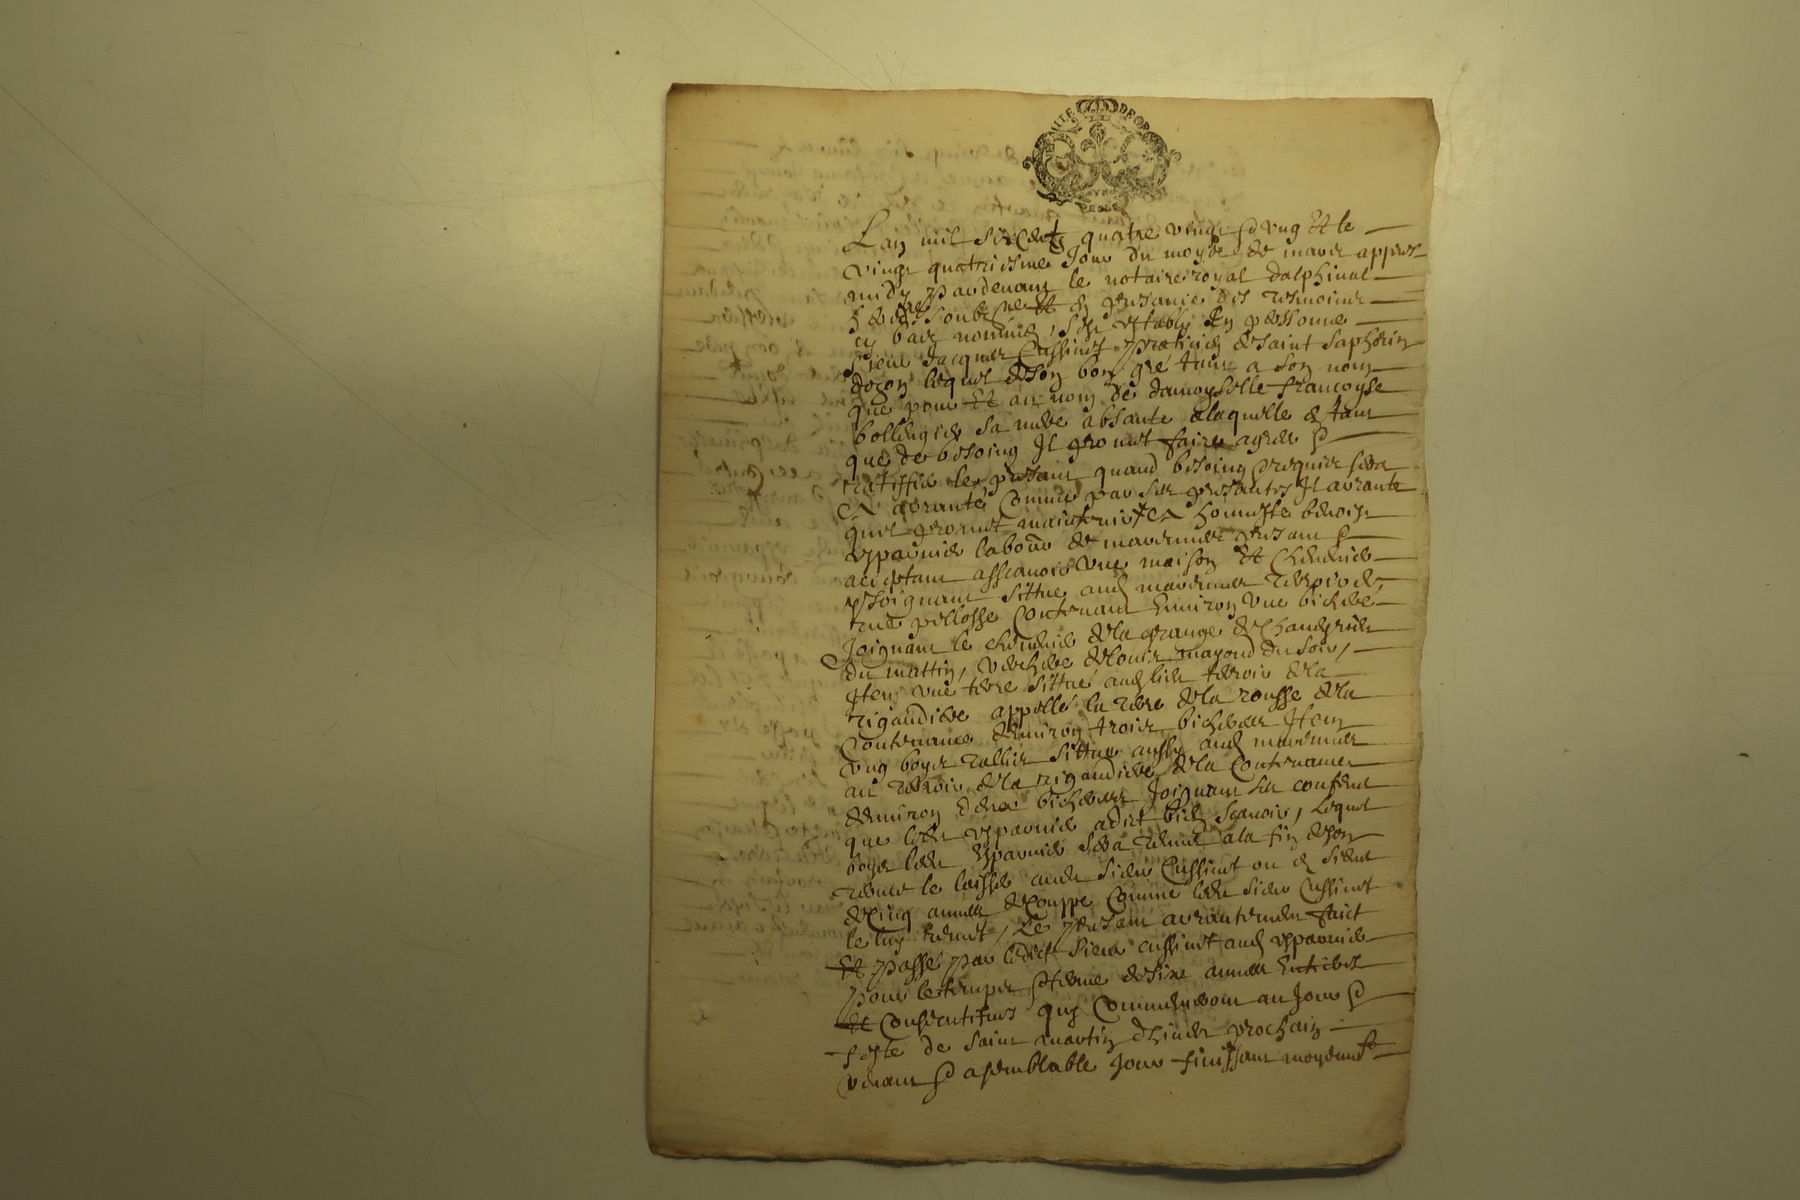 Lan mil six Centz quatre vingt & ung Et le
vingt quatriesme Jour du moys de mars appres
midy pardevant le notaire royal dalphinal
soubzne Et en presance des tesmoins
cy bas nommés, sest estably En personne
sieur Jacques Cussinet praticien de saint saphorin
dozon lequel de son bon gré tant a son nom
que pour Et au nom de damoyselle francoyse
sa mere absante alaquelle & tant
que de besoing Il promet faire agreer &
rattiffier le presant quand besoing requier sera
A arranté Comme par ses presantes Il arrante
quil promet maintenir A honneste benoist
esparvier labour de marennes presant &
acceptant assavoir une maison Et
Joignant sittue aud marennes
Contenant Environ une bicheree
Joignant le de la grange de
du mattin, de louis mayoud du soir,
Item une terre sittué aud lieu terroir de la
rigaudiere appellé la terre de la rousse de la
Contenance denviron trois bicherees Item
ung boys tallier sittue aussy aud marennes
au terroir de la rigaudiere de la Contenance
denviron bicherees Joignant ses confins
que ledit esparvier a dict bien scavoir, Lequel
boys led Esparvier sera tenu a la fin de son
terme le laisser aud sieur Cussinet ou
de cinq annees de couppe Comme led sieur Cussinet
le luy remet, Le presant arrantement faict
Et passé par ledict sieur cussinet aud esparvier
pour le temps & terme de six annees Entieres
Et Consecutives quy Commenceront au Jour &
feste de saint martin dhiver prochain
venant & a semblable Jour finissant moyennt